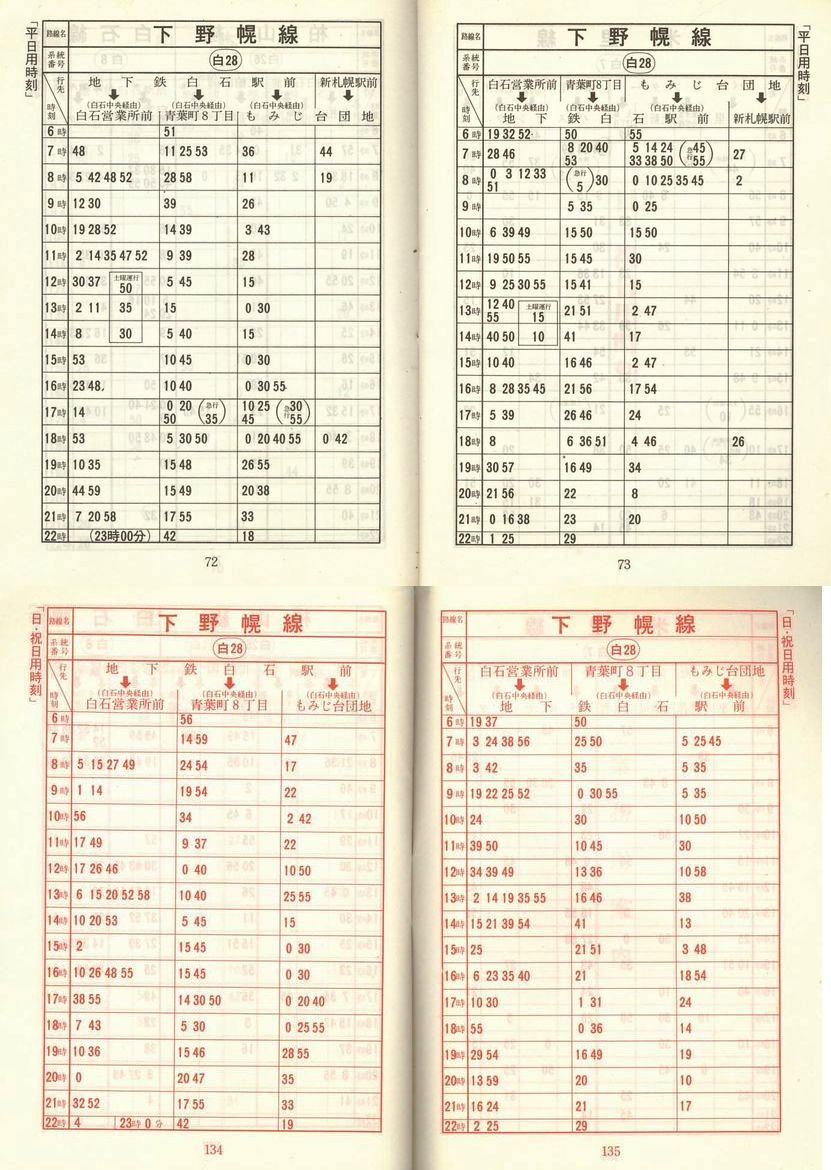 「平日用時刻」
路線名 下野幌線
系統番号 白28
行先 地下鉄白石駅前 新札幌駅前
(白石中央経由) (白石中央経由) (白石中央経由)
時刻 白石営業所前 青葉町8丁目 もみじ台団地
6時 51
7時 48 11 25 53 36 44
8時 5 42 48 52 28 58 11 19
9時 12 30 39 26
10時 19 28 52 14 39 3 43
11時 2 14 35 47 52 9 39 28
12時 30 37 土曜運行 50 5 45 15
13時 2 11 35 15 0 30
14時 8 30 5 40 15
15時 53 10 45 0 30
16時 23 48 10 40 0 30 55
17時 14 0 20 50 (急行 35) 10 25 45 (急行 30 55)
18時 53 5 30 50 0 20 40 55 0 42
19時 10 35 15 48 26 55
20時 44 59 15 49 20 38
21時 7 20 58 17 55 33
22時 (23時00分) 42 18
72
「平日用時刻」
路線名 下野幌線
系統番号 白28
行先 白石営業所前 青葉町8丁目 もみじ台団地
(白石中央経由) (白石中央経由) (白石中央経由)
時刻 地下鉄白石駅前 新札幌駅前
6時 19 32 52 50 55
7時 28 46 8 20 40 53 5 14 24 33 38 50 (急行 45 55) 27
8時 0 3 12 33 51 (急行 5) 30 0 10 25 35 45 2
9時 5 35 0 25
10時 6 39 49 15 50 15 50
11時 19 50 55 15 45 30
12時 9 25 30 55 15 41 15
13時 12 40 55 土曜運行 15 21 51 2 47
14時 40 50 10 41 17
15時 10 40 16 46 2 47
16時 8 28 35 45 21 56 17 54
17時 5 39 26 46 24
18時 8 6 36 51 4 46 26
19時 30 57 16 49 34
20時 21 56 22 8
21時 0 16 38 23 20
22時 1 25 29
73
「日・祝日用時刻」
路線名 下野幌線
系統番号 白28
行先 地下鉄白石駅前
(白石中央経由) (白石中央経由) (白石中央経由)
時刻 白石営業所前 青葉町8丁目 もみじ台団地
6時 56
7時 14 59 47
8時 5 15 27 49 24 54 17
9時 1 14 19 54 22
10時 56 34 2 42
11時 17 49 9 37 22
12時 17 26 46 0 40 10 50
13時 6 15 20 52 58 10 40 25 55
14時 10 20 53 5 45 15
15時 2 15 45 0 30
16時 10 26 48 55 15 45 0 30
17時 38 55 14 30 50 0 20 40
18時 7 43 5 30 0 25 55
19時 10 36 15 46 28 55
20時 0 20 47 35
21時 32 52 17 55 33
22時 4 23時0分 42 19
134
「日・祝日用時刻」
路線名 下野幌線
系統番号 白28
行先 白石営業所前 青葉町8丁目 もみじ台団地
(白石中央経由) (白石中央経由) (白石中央経由)
時刻 地下鉄白石駅前
6時 19 37 50
7時 3 24 38 56 25 50 5 25 45
8時 3 42 35 5 35
9時 19 22 25 52 0 30 55 5 35
10時 24 30 10 50
11時 39 50 10 45 30
12時 34 39 49 13 36 10 58
13時 2 14 19 35 55 16 46 38
14時 15 21 39 54 41 13
15時 25 21 51 3 48
16時 6 23 35 40 21 18 54
17時 10 30 1 31 24
18時 55 0 36 14
19時 29 54 16 49 19
20時 13 59 20 10
21時 16 24 21 17
22時 2 25 29
135